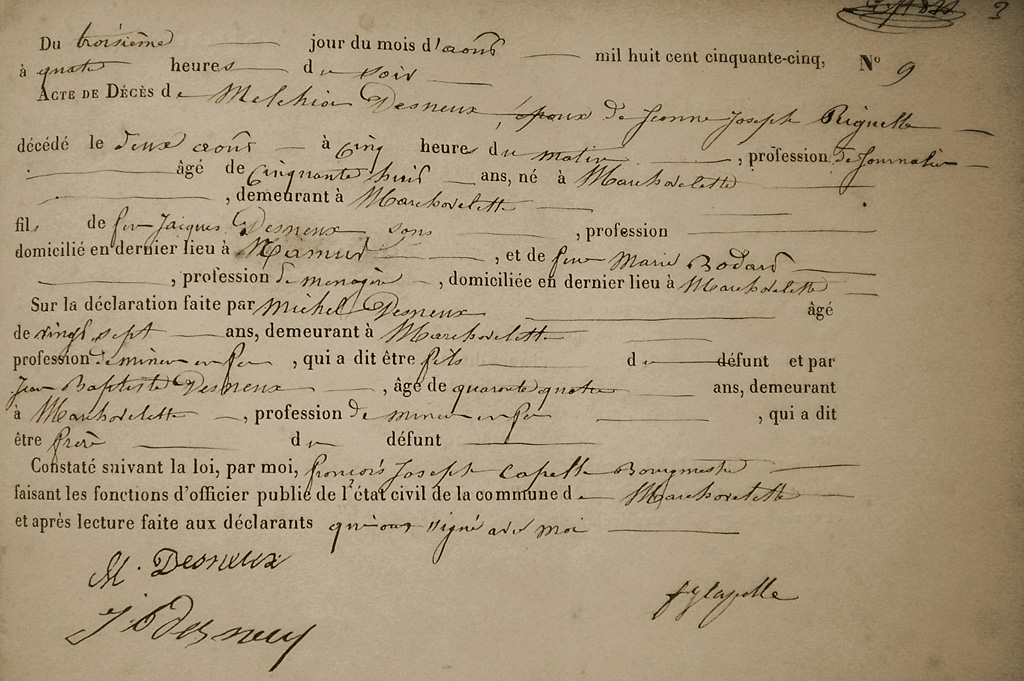 3
Du troisième jour du mois d'août mil huit cent cinquante-cinq, N° 9
à quatre heures du soir
ACTE DE DÉCÈS de Melchior Desneux, époux de Jeanne Joseph Riguelle
décédé le deux août à cinq heure du matin, profession de Journalier
âgé de cinquante huit ans, né à Marchovelette
, demeurant à Marchovelette
fils de feu Jacques Desneux sans, profession
domicilié en dernier lieu à Namur, et de feue Marie Bodard
, profession de menagère, domiciliée en dernier lieu à Marchovelette
Sur la déclaration faite par Michel Desneux âgé
de vingt sept ans, demeurant à Marchovelette
profession de mineur en fer, qui a dit être fils du défunt et par
Jean Baptiste Desneux, âgé de quarante quatre ans, demeurant
à Marchovelette, profession de mineur en fer, qui a dit
être frère du défunt
Constaté suivant la loi, par moi, françois Joseph Capelle Bourgmestre
faisant les fonctions d'officier public de l'état civil de la commune de Marchovelette
et après lecture faite aux déclarants qui ont signé avec moi
M. Desneux
J b desneux
fJCapelle